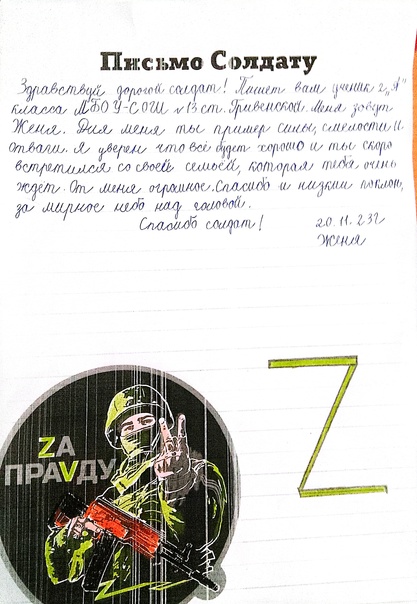 Письмо Солдату
Здравствуй дорогой солдат! Пишет вам ученик 2 „А"
класса МБОУ-СОШ №13 ст. Гривенской. Меня зовут
Женя. Для меня ты пример силы, смелости и
отваги. Я уверен что всё будет хорошо и ты скоро
встретился со своей семьей, которая тебя очень
ждёт. От меня огромное. Спасибо и низкий поклон,
за мирное небо над головой.
Спасибо солдат!
20.11.23г
Женя
Z
ZА
ПРАVДУ